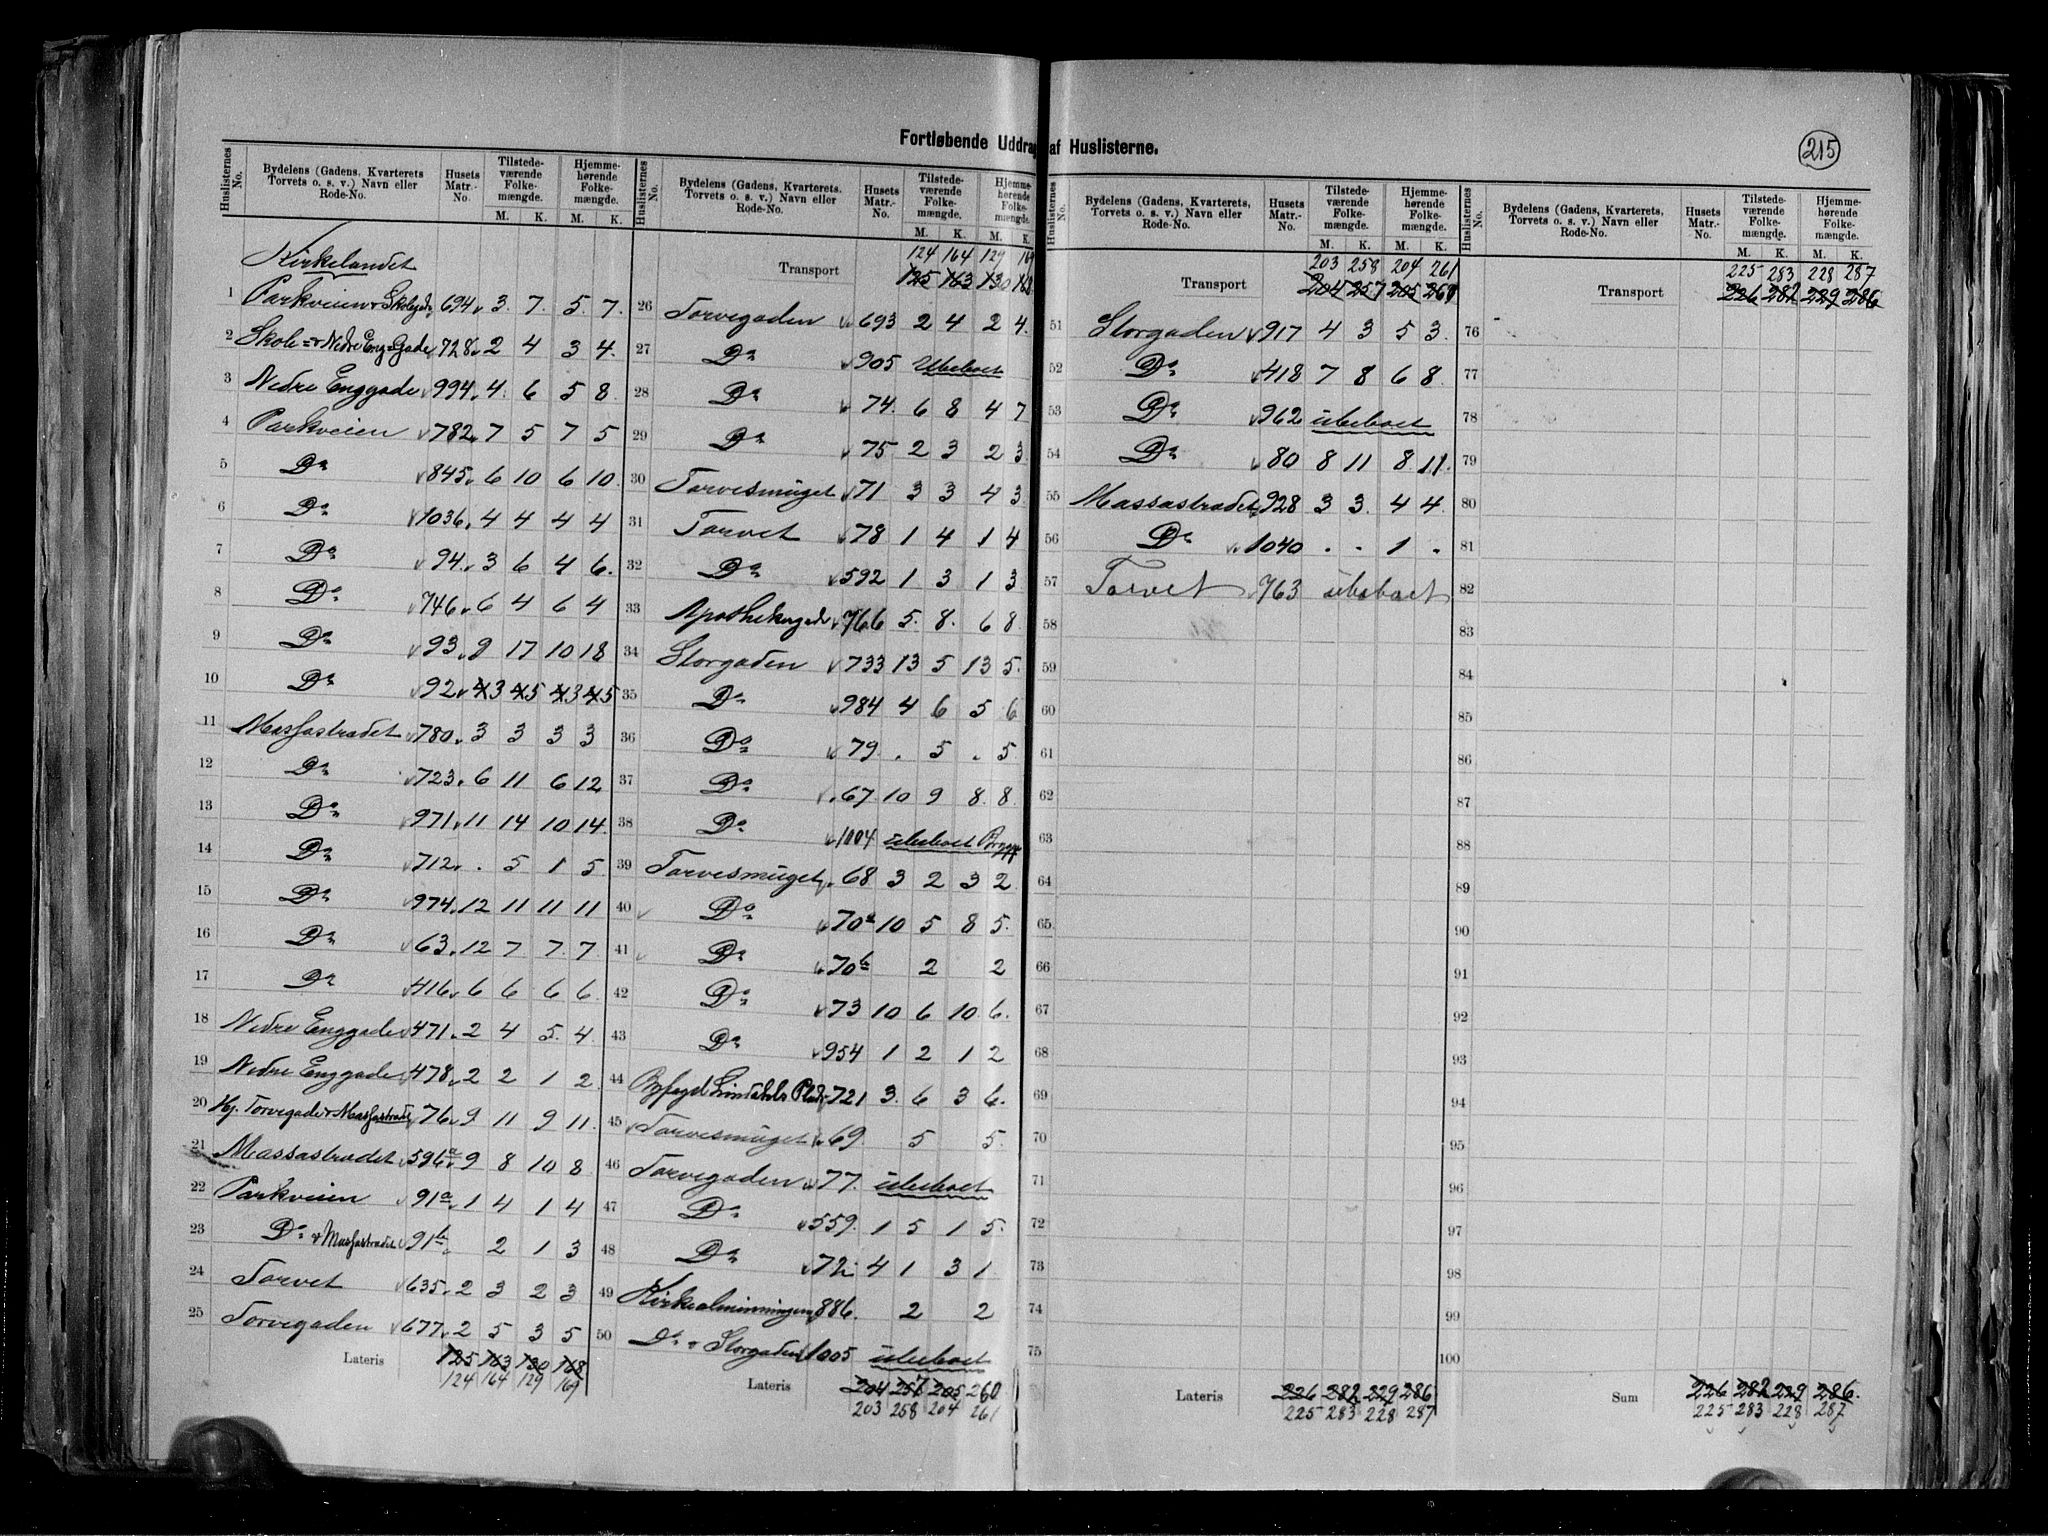 Fortløbende Uddrag af Huslisterne.
215
Huslisternes No. Bydelens (Gadens, Kvarterets, Torvets o. s. v.) Navn eller Rode-No. Husets Matr.-No. Tilstedeværende Folkemængde. M. K. Hjemmehørende Folkemængde. M. K.
Kirkelandet
1 Parkveien v 694 3 7 5 7
2 Skole= v Nedre Eng=Gade 728 2 4 3 4
3 Nedre Enggade 994 4 6 5 8
4 Parkveien 782 7 5 7 5
5 Do 845 6 10 6 10
6 Do 1036 4 4 4 4
7 Do 94 3 6 4 6
8 Do 746 6 4 6 4
9 Do 93 9 17 10 18
10 Do 92 4 3 4 5 4 3 4 5
11 Massastradet 780 3 3 3 3
12 Do 723 6 11 6 12
13 Do 971 11 14 10 14
14 Do 712 . 5 1 5
15 Do 974 12 11 11 11
16 Do 63 12 7 7 7
17 Do 416 6 6 6 6
18 Nedre Enggade 471 2 4 5 4
19 Nedre Enggade 478 2 2 1 2
20 Hj. Torvegade v Massastradet 76 9 11 9 11
21 Massastradet 596a 9 8 10 8
22 Parkveien 91a 1 4 1 4
23 Do v Massastradet 91b 2 1 3
24 Torvet 635 2 3 2 3
25 Torvegaden 677 2 5 3 5
Lateris 125 163 130 168
124 164 129 169
Huslisternes No. Bydelens (Gadens, Kvarterets, Torvets o. s. v.) Navn eller Rode-No. Husets Matr.-No. Tilstedeværende Folkemængde. M. K. Hjemmehørende Folkemængde. M. K.
124 164 129 169
Transport 125 163 130 168
26 Torvegaden 693 2 4 2 4
27 Do 905 Ubeboet
28 Do 74 6 8 4 7
29 Do 75 2 3 2 3
30 Torvesmuget 71 3 3 4 3
31 Torvet 78 1 4 1 4
32 Do 592 1 3 1 3
33 Apothekergade 766 5 8 6 8
34 Storgaden 733 13 5 13 5
35 Do 984 4 6 5 6
36 Do 79 . 5 . 5
37 Do 67 10 9 8 8
38 Do 1004 ubeboet
39 Torvesmuget 68 3 2 3 2
40 Do 70a 10 5 8 5
41 Do 70b 2 2
42 Do 73 10 6 10 6
43 Do 954 1 2 1 2
44 721 3 6 3 6
45 Torvesmuget 69 5 5
46 Torvegaden 77 ubeboet
47 Do 559 1 5 1 5
48 Do 72 4 1 3 1
49 Kirkealminningen 886 2 2
50 Do v Storgaden 1005 ubeboet
Lateris 204 257 205 260
203 258 204 261
Huslisternes No. Bydelens (Gadens, Kvarterets, Torvets o. s. v.) Navn eller Rode-No. Husets Matr.-No. Tilstedeværende Folkemængde. M. K. Hjemmehørende Folkemængde. M. K.
203 258 204 261
Transport 204 257 205 260
51 Storgaden 917 4 3 5 3
52 Do 418 7 8 6 8
53 Do 962 ubeboet
54 Do 80 8 11 8 11
55 Massastradet 928 3 3 4 4
56 Do 1040 . . 1 .
57 Torvet 763 ubeboet
58
59
60
61
62
63
64
65
66
67
68
69
70
71
72
73
74
75
Lateris 226 282 229 286
225 283 228 287
Huslisternes No. Bydelens (Gadens, Kvarterets, Torvets o. s. v.) Navn eller Rode-No. Husets Matr.-No. Tilstedeværende Folkemængde. M. K. Hjemmehørende Folkemængde. M. K.
225 283 228 287
Transport 226 282 229 286
76
77
78
79
80
81
82
83
84
85
86
87
88
89
90
91
92
93
94
95
96
97
98
99
100
Sum 226 282 229 286
225 283 228 287